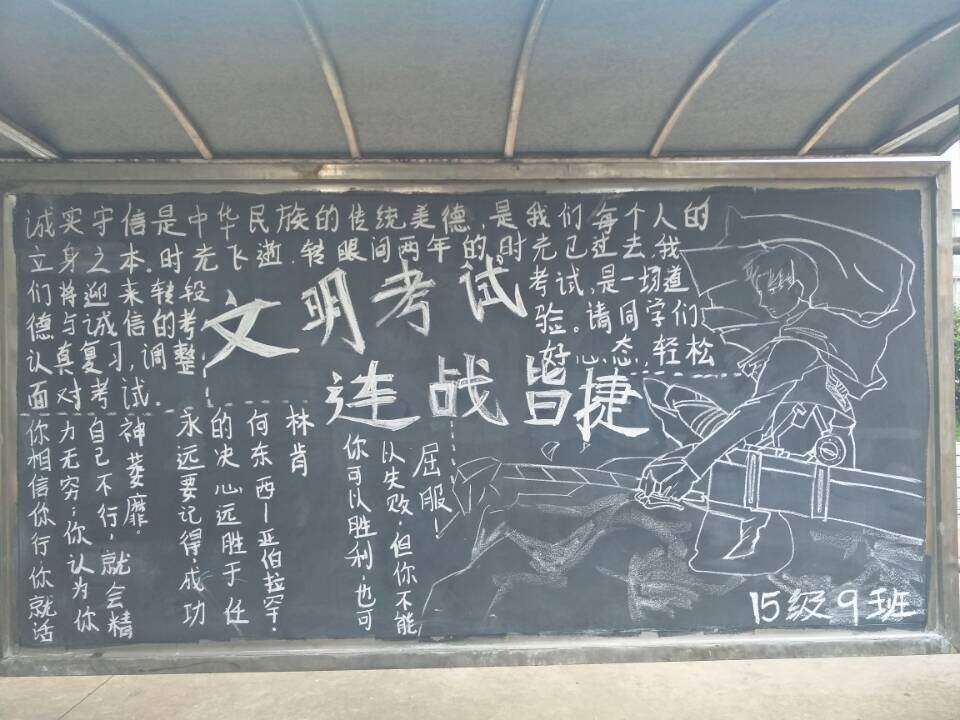 诚实守信是中华民族的传统美德,是我们每个人的
立身之本.时光飞逝,转眼间两年的时光已过去,我
们将迎来转段考试,是一场道
德与诚信的考验。请同学们
认真复习,调整好心态,轻松
面对考试.
文明考试
连战皆捷
你相信你行你就活
力无穷;你认为你
自己不行,就会精
神萎靡.
永远要记得,成功
的决心远胜于任
何东西—亚伯拉罕·
林肯
你可以胜利,也可
以失败,但你不能
屈服!
15级9班